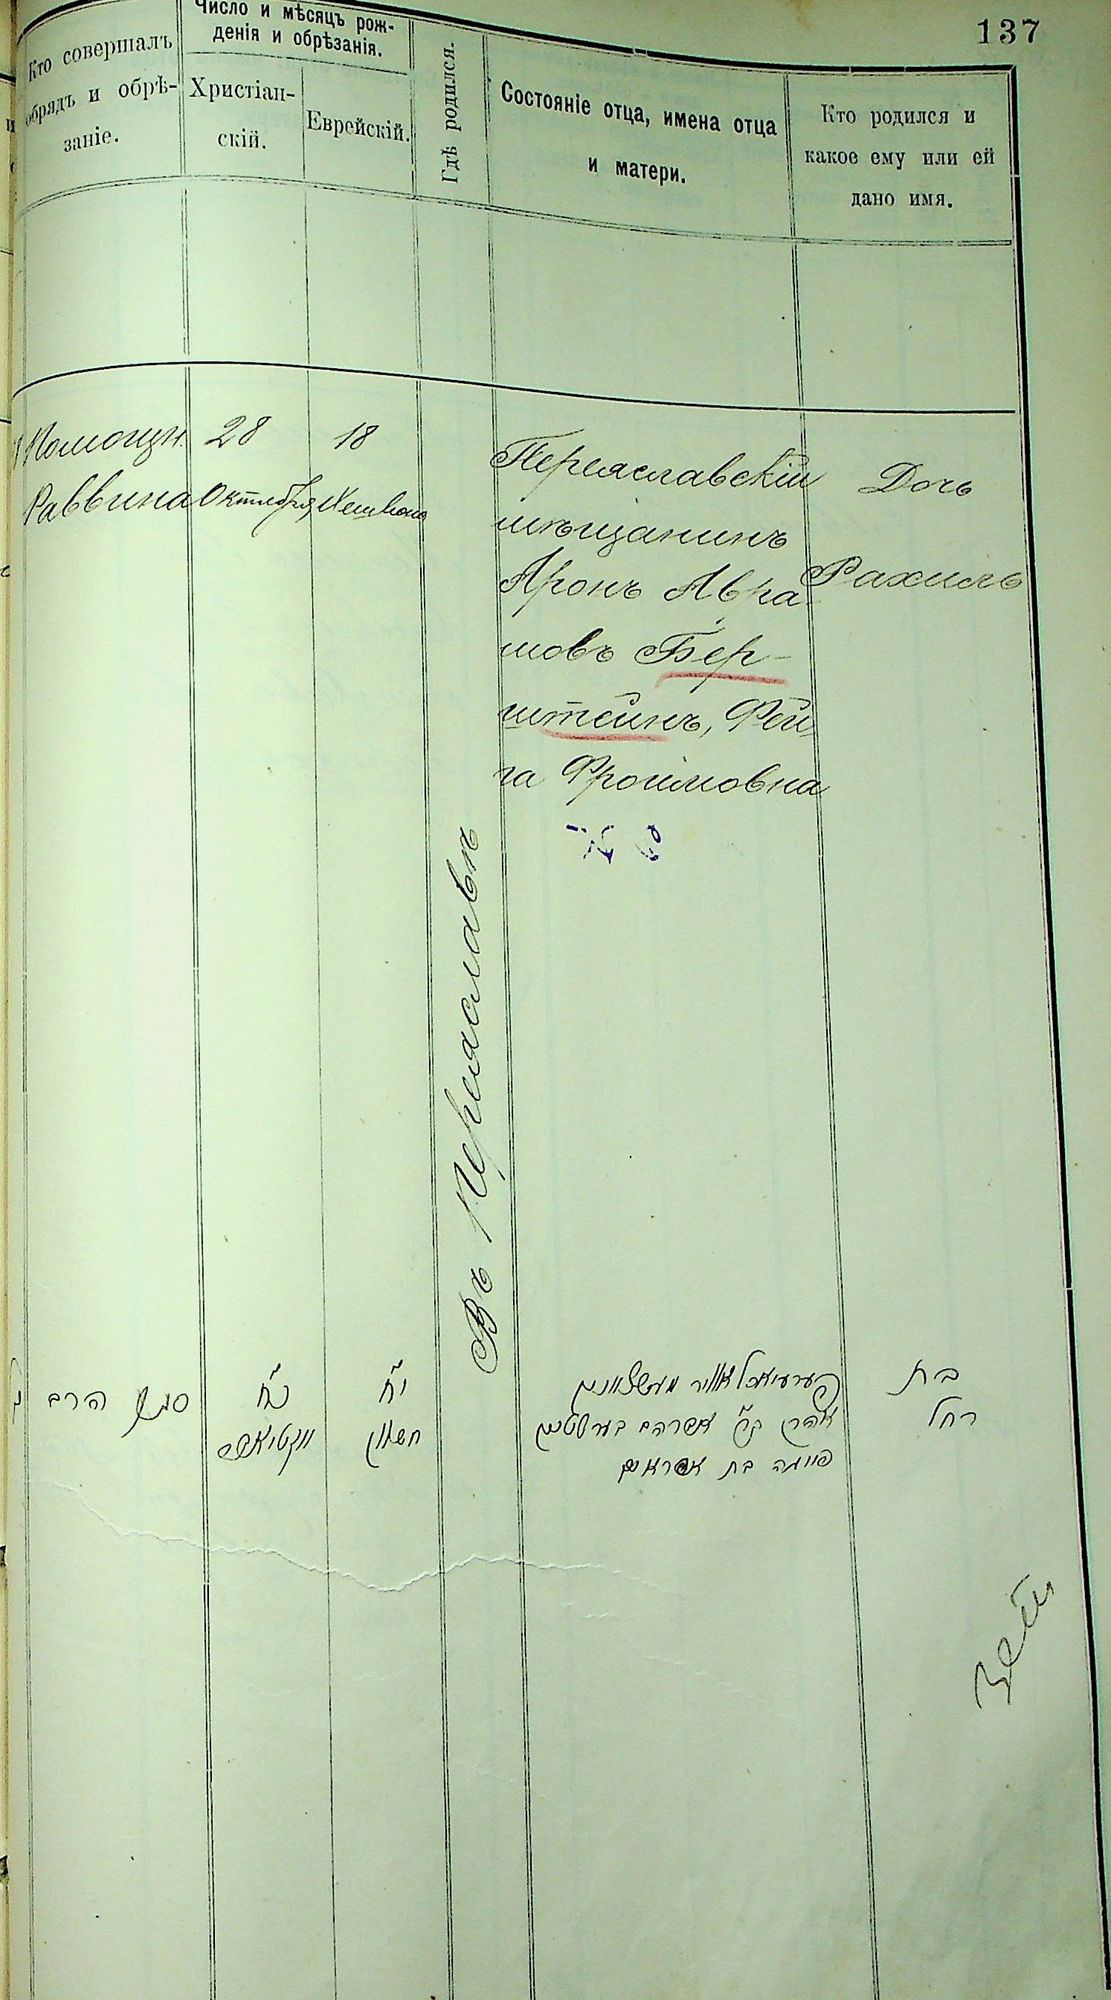 137
Кто совершалъ
обрядъ и обрѣ-
заніе.
Число и мѣсяцъ рож-
денія и обрѣзанія.
Христіан-
скій.
Еврейскій.
Гдѣ родился.
Состояніе отца, имена отца
и матери.
Кто родился и
какое ему или ей
дано имя.
Помощн.
Раввина
28
Октября
18
Хешвона
Въ Переяславѣ
Переяславскій
мѣщанинъ
Аронъ Авра-
мовъ Бер-
штейнъ, Фей
га Фроимовна
Дочь
Рахиль
הרב
כ״ח
אקטיאבר
י״ח
חשוון
אהרן ב״ר אברהם בערשטיין
פייגה בת אפראים
בת
רחל